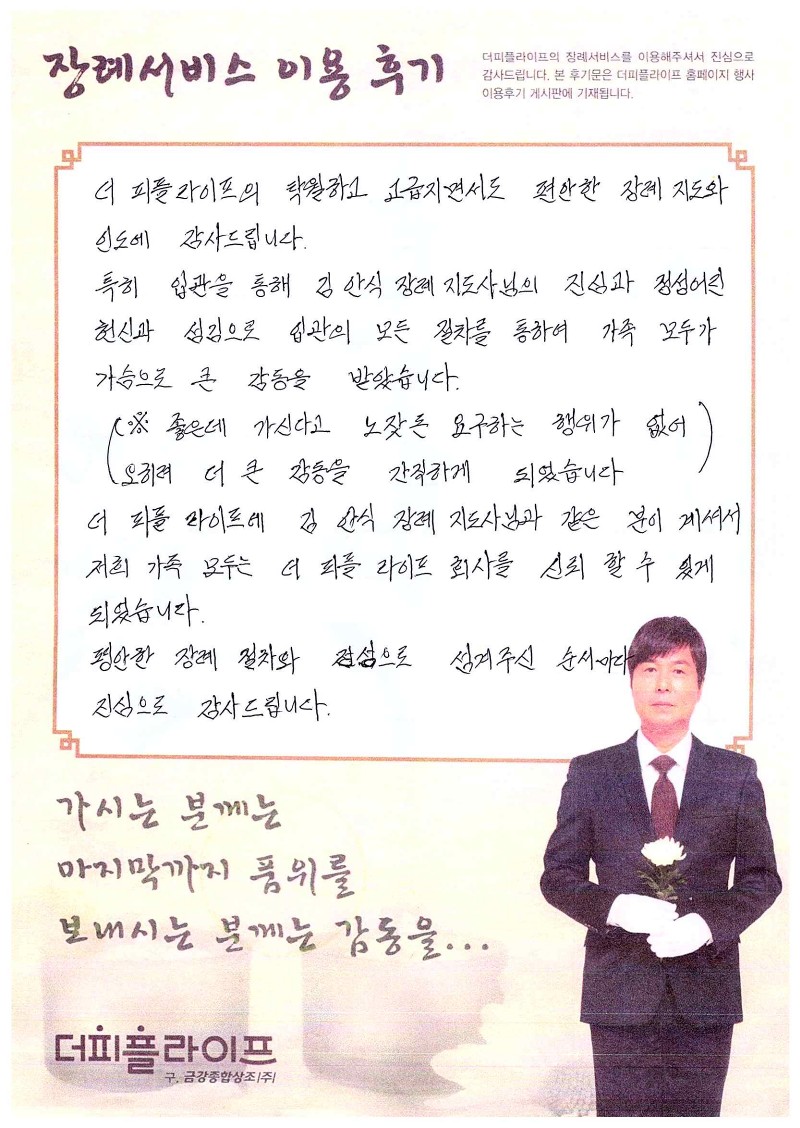 장례서비스 이용 후기
더피플라이프의 장례서비스를 이용해주셔서 진심으로
감사드립니다. 본 후기문은 더피플라이프 홈페이지 행사
이용후기 게시판에 기재됩니다.
더 피플 라이프의 탁월하고 고급지면서도 편안한 장례 지도와
인도에 감사드립니다.
특히 입관을 통해 김 안식 장례 지도사님의 진심과 정성어린
헌신과 섬김으로 입관의 모든 절차를 통하여 가족 모두가
가슴으로 큰 감동을 받았습니다.
(※ 좋은데 가신다고 노잣돈 요구하는 행위가 없어
오히려 더 큰 감동을 간직하게 되었습니다)
더 피플 라이프에 김 안식 장례 지도사님과 같은 분이 계셔서
저희 가족 모두는 더 피플 라이프 회사를 신뢰 할 수 있게
되었습니다.
평안한 장례 절차와 정성으로 섬겨주신 순서마다
진심으로 감사드립니다.
가시는 분께는
마지막까지 품위를
보내시는 분께는 감동을...
더피플라이프
구. 금강종합상조(주)